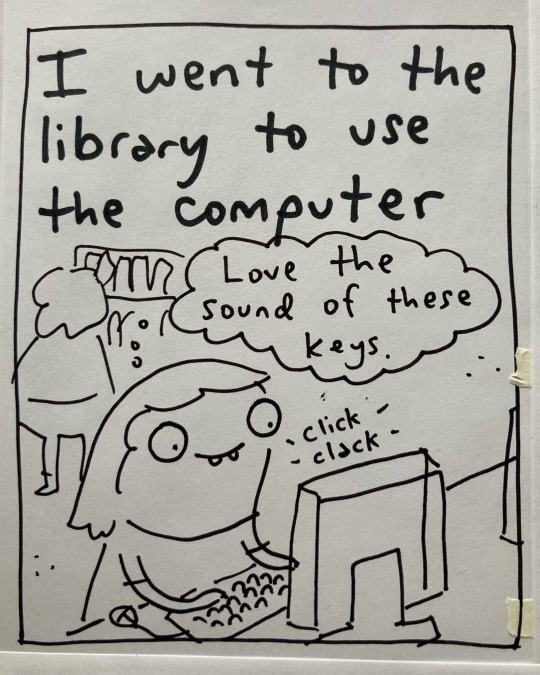 I went to the
library to use
the computer
Love the
sound of these
keys.
click
clack